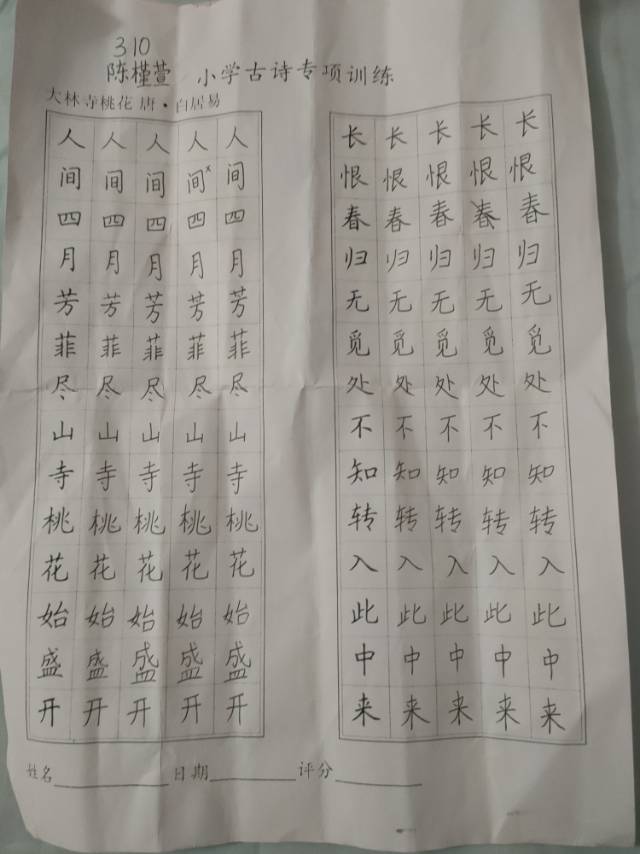 310
陈槿萱 小学古诗专项训练
大林寺桃花 唐·白居易
人人人人人
间间间间间
四四四四四
月月月月月
芳芳芳芳芳
菲菲菲菲菲
尽尽尽尽尽
山山山山山
寺寺寺寺寺
桃桃桃桃桃
花花花花花
始始始始始
盛盛盛盛盛
开开开开开
长长长长长
恨恨恨恨恨
春春春春春
归归归归归
无无无无无
觅觅觅觅觅
处处处处处
不不不不不
知知知知知
转转转转转
入入入入入
此此此此此
中中中中中
来来来来来
姓名 日期 评分